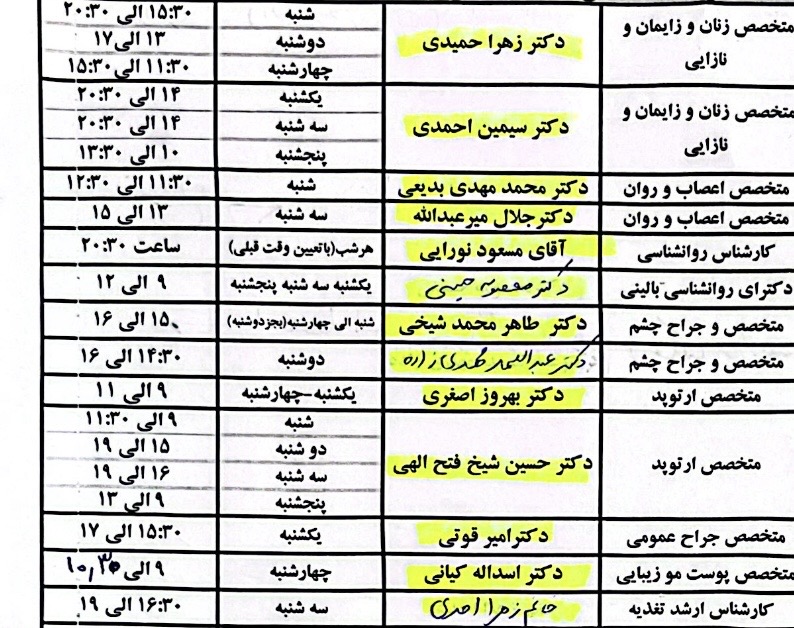 متخصص زنان و زایمان و نازایی دکتر زهرا حمیدی شنبه ۱۵:۳۰ الی ۲۰:۳۰
دوشنبه ۱۳ الی ۱۷
چهارشنبه ۱۱:۳۰ الی ۱۵:۳۰
متخصص زنان و زایمان و نازایی دکتر سیمین احمدی یکشنبه ۱۴ الی ۲۰:۳۰
سه شنبه ۱۴ الی ۲۰:۳۰
پنجشنبه ۱۰ الی ۱۳:۳۰
متخصص اعصاب و روان دکتر محمد مهدی بدیعی شنبه ۱۱:۳۰ الی ۱۲:۳۰
متخصص اعصاب و روان دکترجلال میرعبدالله سه شنبه ۱۳ الی ۱۵
کارشناس روانشناسی آقای مسعود نورایی هرشب(باتعیین وقت قبلی) ساعت ۲۰:۳۰
دکترای روانشناسی بالینی دکتر معصومه یکشنبه سه شنبه پنجشنبه ۹ الی ۱۲
متخصص و جراح چشم دکتر طاهر محمد شیخی شنبه الی چهارشنبه(بجزدوشنبه) ۱۵ الی ۱۶
متخصص و جراح چشم دکتر دوشنبه ۱۴:۳۰ الی ۱۶
متخصص ارتوپد دکتر بهروز اصغری یکشنبه-چهارشنبه ۹ الی ۱۱
متخصص ارتوپد دکتر حسین شیخ فتح الهی شنبه ۹ الی ۱۱:۳۰
دو شنبه ۱۵ الی ۱۹
سه شنبه ۱۶ الی ۱۹
پنجشنبه ۹ الی ۱۳
متخصص جراح عمومی دکترامیر قوتی یکشنبه ۱۵:۳۰ الی ۱۷
متخصص پوست مو زیبایی دکتر اسداله کیانی چهارشنبه ۹ الی ۱۰,۳۰
کارشناس ارشد تغذیه خانم زهرا احدی سه شنبه ۱۶:۳۰ الی ۱۹